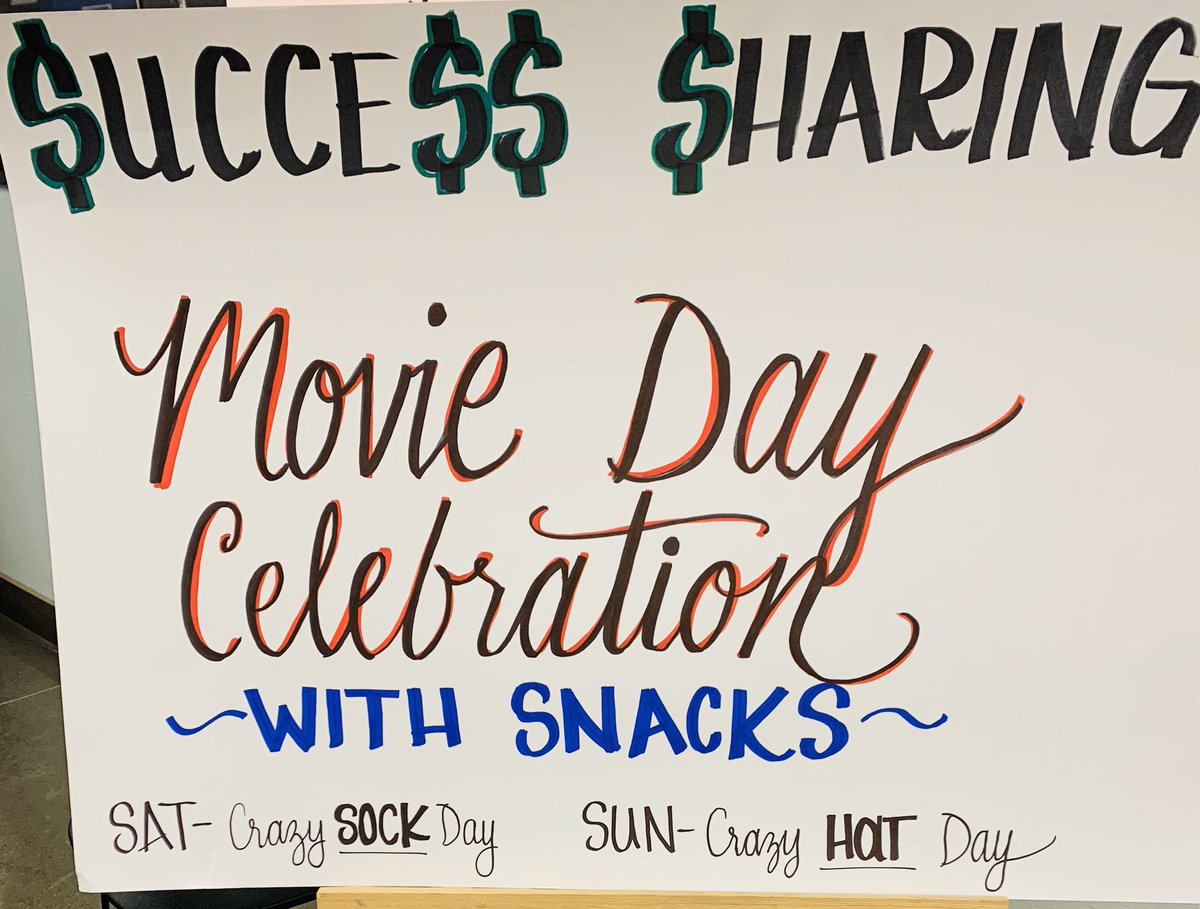 $UCCE$$ $HARING
Movie Day
Celebration
~WITH SNACKS~
SAT- Crazy SOCK Day SUN- Crazy HaT Day